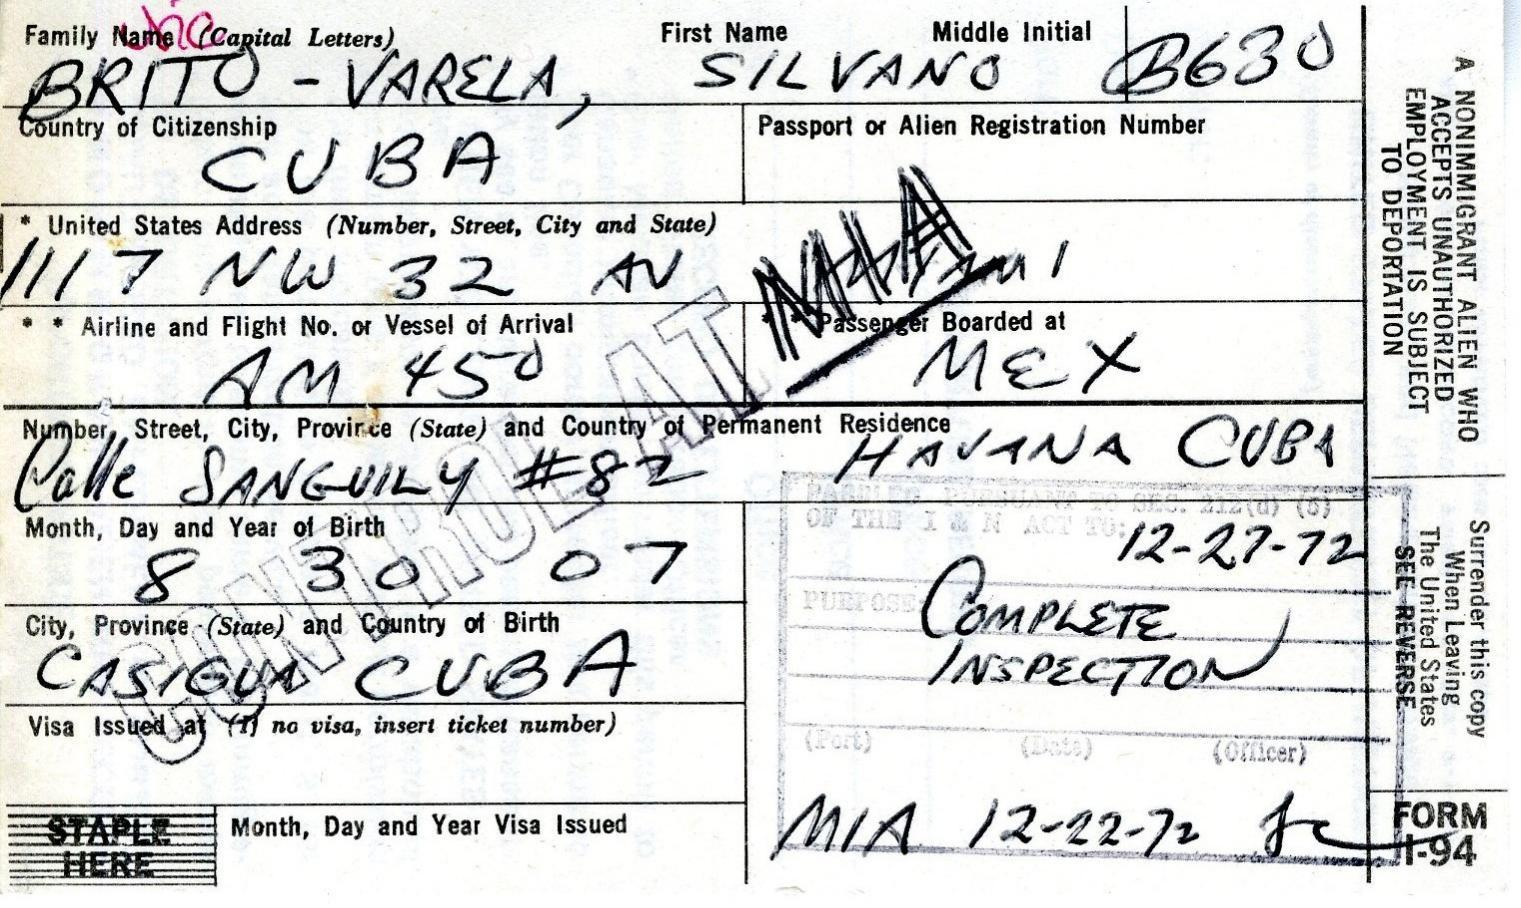 Family Name (Capital Letters) First Name Middle Initial
BRITO - VARELA, SILVANO B630
Country of Citizenship Passport or Alien Registration Number
CUBA
* United States Address (Number, Street, City and State)
1117 NW 32 AV Miami
* * Airline and Flight No. or Vessel of Arrival * * Passenger Boarded at
AM 450 MEX
Number, Street, City, Province (State) and Country of Permanent Residence
Calle SANGUILY #82 HAVANA CUBA
Month, Day and Year of Birth
8 30 07
City, Province (State) and Country of Birth
CASIGUA CUBA
Visa Issued at (If no visa, insert ticket number)
STAPLE HERE
Month, Day and Year Visa Issued
CONTROL AT MIA
PAROLED PURSUANT TO SEC. 212(d) (5)
OF THE I & N ACT TO:
12-27-72
PURPOSE:
COMPLETE
INSPECTION
(Port) (Date) (Officer)
MIA 12-22-72
A NONIMMIGRANT ALIEN WHO
ACCEPTS UNAUTHORIZED
EMPLOYMENT IS SUBJECT
TO DEPORTATION
Surrender this copy
When Leaving
The United States
SEE REVERSE
FORM
I-94